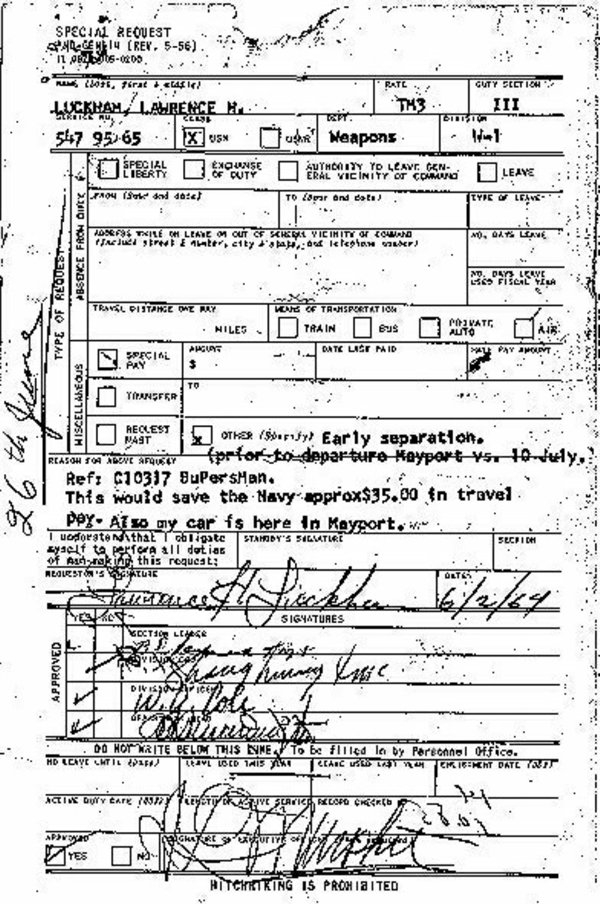 SPECIAL REQUEST
(REV. 5-56)
NAME (Last, first & middle) RATE DUTY SECTION
LUCKHAM, LAWRENCE H. TM3 III
SERVICE NO. CLASS DEPT. DIVISION
547 95 65 X USN USNR Weapons W-1
TYPE OF REQUEST
ABSENCE FROM DUTY
SPECIAL LIBERTY EXCHANGE OF DUTY AUTHORITY TO LEAVE GENERAL VICINITY OF COMMAND LEAVE
FROM (Hour and date) TO (Hour and date) TYPE OF LEAVE
ADDRESS WHILE ON LEAVE OR OUT OF GENERAL VICINITY OF COMMAND NO. DAYS LEAVE
(Include street & number, city & state, and telephone number)
NO. DAYS LEAVE USED FISCAL YEAR
TRAVEL DISTANCE ONE WAY MEANS OF TRANSPORTATION
MILES TRAIN BUS PRIVATE AUTO AIR
MISCELLANEOUS
SPECIAL PAY AMOUNT DATE LAST PAID HALF PAY AMOUNT
$
TRANSFER TO
REQUEST MAST X OTHER (Specify) Early separation.
REASON FOR ABOVE REQUEST (prior to departure Mayport vs. 10 July.
Ref: C10317 BuPersMan.
This would save the Navy approx$35.00 in travel
pay. Also my car is here in Mayport.
26 th June
I understand that I obligate STANDBY'S SIGNATURE SECTION
myself to perform all duties
of man making this request:
REQUESTOR'S SIGNATURE DATE
Lawrence H. Luckham 6/2/64
YES NO SIGNATURES
APPROVED
SECTION LEADER
DIVISION CPO
DIVISION OFFICER
W. G. Cole
DO NOT WRITE BELOW THIS LINE. To be filled in by Personnel Office.
NO LEAVE UNTIL (Date) LEAVE USED THIS YEAR LEAVE USED LAST YEAR ENLISTMENT DATE (OBS)
ACTIVE DUTY DATE (OBS) LENGTH OF ACTIVE SERVICE RECORD CHECKED BY
APPROVED SIGNATURE OF EXECUTIVE OFFICER
YES NO
HITCHHIKING IS PROHIBITED